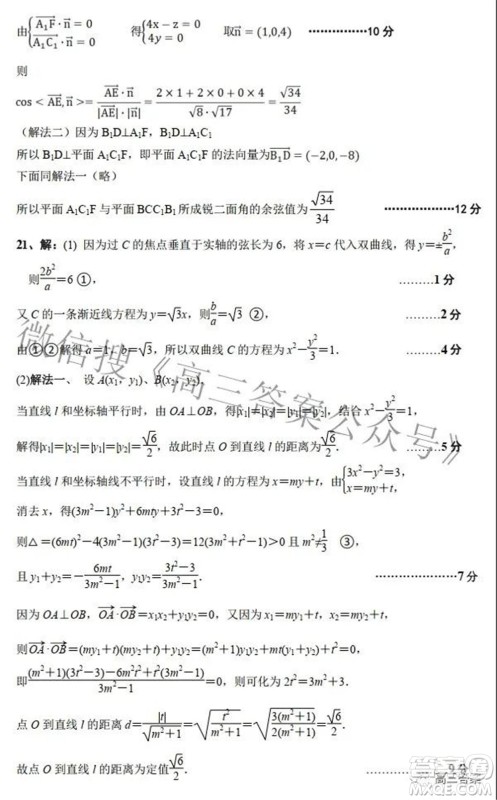 由{A₁F·n=0 A₁C₁·n=0 得{4x−z=0 4y=0 取n=(1,0,4) ···············10 分
则
cos<AE,n>=AE·n/|AE|·|n|=2×1+2×0+0×4/√8·√17=√34/34
（解法二）因为 B₁D⊥A₁F，B₁D⊥A₁C₁
所以 B₁D⊥平面 A₁C₁F，即平面 A₁C₁F 的法向量为B₁D=(−2,0,−8)
下面同解法一（略）
所以平面 A₁C₁F 与平面 BCC₁B₁ 所成锐二面角的余弦值为√34/34 ··················12 分
21、解：(1) 因为过 C 的焦点垂直于实轴的弦长为 6，将 x=c 代入双曲线，得 y=±b²/a，
则2b²/a=6 ①， ………1 分
又 C 的一条渐近线方程为 y=√3x，则b/a=√3 ②， ………2 分
由①②解得 a=1，b=√3，所以双曲线 C 的方程为 x²−y²/3=1． ………4 分
(2)解法一、 设 A(x₁, y₁)、B(x₂, y₂)，
当直线 l 和坐标轴平行时，由 OA⊥OB，得|x₁|=|x₂|=|y₁|=|y₂|，结合 x²−y²/3=1，
解得|x₁|=|x₂|=|y₁|=|y₂|=√6/2，故此时点 O 到直线 l 的距离为√6/2． ………5 分
当直线 l 和坐标轴线不平行时，设直线 l 的方程为 x=my+t，由{3x²−y²=3, x=my+t,
消去 x，得(3m²−1)y²+6mty+3t²−3=0，
则△=(6mt)²−4(3m²−1)(3t²−3)=12(3m²+t²−1)>0 且 m²≠1/3 ③，
且 y₁+y₂=−6mt/3m²−1，y₁y₂=3t²−3/3m²−1． ·····················7 分
因为 OA⊥OB，OA·OB=x₁x₂+y₁y₂=0，又因为 x=my+t，
则OA·OB=(my₁+t)(my₂+t)+y₁y₂=(m²+1)y₁y₂+mt(y₁+y₂)+t²=0，
即(m²+1)(3t²−3)−6m²t²+t²(3m²−1)/3m²−1=0，则可化为 2t²=3m²+3．
点 O 到直线 l 的距离 d=|t|/√m²+1=√t²/m²+1=√3(m²+1)/2(m²+1)=√6/2．
故点 O 到直线 l 的距离为定值√6/2． 9 分
微信搜《高三答案公众号》
高三答案